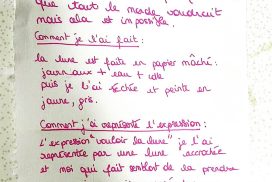 que tout le monde voudrait
mais cela est impossible.
Comment je l'ai fait :
la lune est faite en papier mâché :
journaux + eau + colle
puis je l'ai séchée et peinte en
jaune, gris.
Comment j'ai représenté l'expression :
L'expression "vouloir la lune" je l'ai
représentée par une lune accrochée
et moi qui fait semblant de la prendre